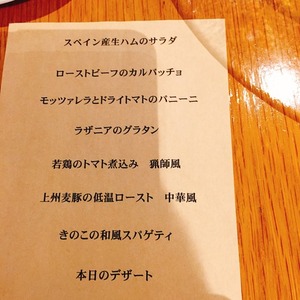 スペイン産生ハムのサラダ
ローストビーフのカルパッチョ
モッツァレラとドライトマトのパニーニ
ラザニアのグラタン
若鶏のトマト煮込み　猟師風
上州麦豚の低温ロースト　中華風
きのこの和風スパゲティ
本日のデザート